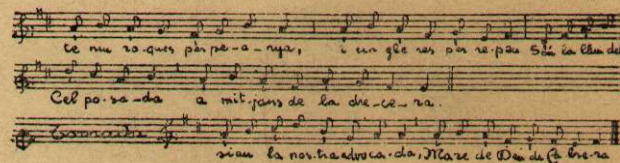 te nu ro-ques per pe-a-nya, i un gle res per re-peu Sou la llum del
Cel po-sa-da a mit-jans de la dre-ce-ra.
Tornada
siau la nos-tra advoca-da, Mare de Deu de Ca bre-ra